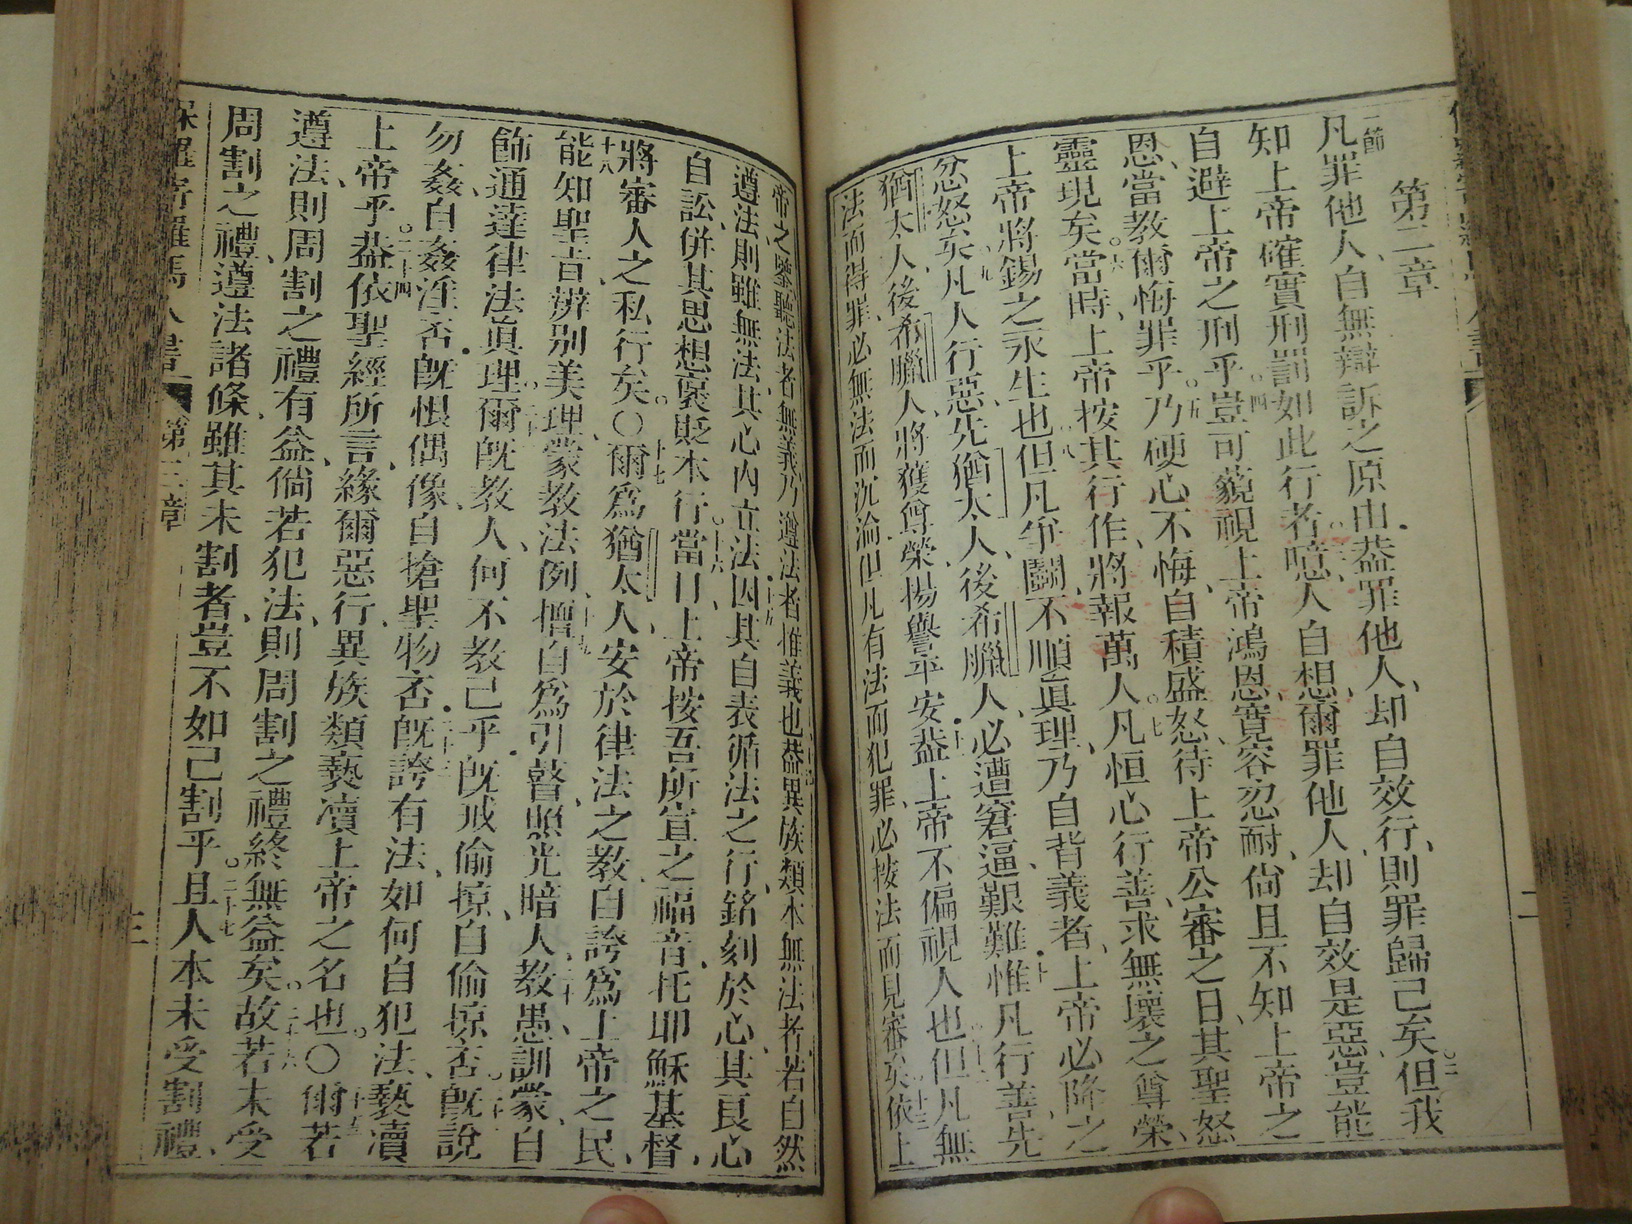 第二章
一節
凡罪他人、自無辯訴之原由、蓋罪他人、却自效行、則罪歸己矣。但我
知上帝確實刑罰如此行者。噫、人自想、爾罪他人、却自效是惡、豈能
自避上帝之刑乎。豈可藐視上帝鴻恩、寬容忍耐、尙且不知上帝之
恩、當教爾悔罪乎。乃硬心不悔、自積盛怒、待上帝公審之日、其聖怒
靈現矣。當時、上帝按其行作、將報萬人。凡恒心行善、求無壞之尊榮、
上帝將錫之永生也。但凡爭鬭、不順眞理、乃自背義者、上帝必降之
忿怒矣。凡人行惡、先猶太人、後希臘人、必遭窘逼艱難。惟凡行善、先
猶太人、後希臘人、將獲尊榮、揚譽平安。蓋上帝不偏視人也。但凡無
法而得罪、必無法而沉淪、但凡有法而犯罪、必按法而見審矣。依上
帝之鑒、聽法者無義、乃遵法者惟義也。蓋異族類本無法者、若自然
遵法、則雖無法、其心內立法。因其自表循法之行、銘刻於心、其良心
自訟、併其思想褒貶本行。當日、上帝按吾所宣之福音、托耶穌基督、
將審人之私行矣。〇爾爲猶太人、安於律法之教、自誇爲上帝之民、
能知聖旨、辨別美理、蒙教法例、擅自爲引瞽照光暗人、教愚訓蒙、自
飾通達律法眞理。爾既教人、何不教己乎。既戒偷掠、自偷掠否。既說
勿姦、自姦淫否。既恨偶像、自搶聖物否。既誇有法、如何自犯法、褻瀆
上帝乎。蓋依聖經所言、緣爾惡行、異族類褻瀆上帝之名也。〇爾若
遵法、則周割之禮有益、倘若犯法、則周割之禮終無益矣。故若未受
周割之禮、遵法諸條、雖其未割者、豈不如己割乎。且人本未受割禮、
保羅寄羅馬人書 第三章 三